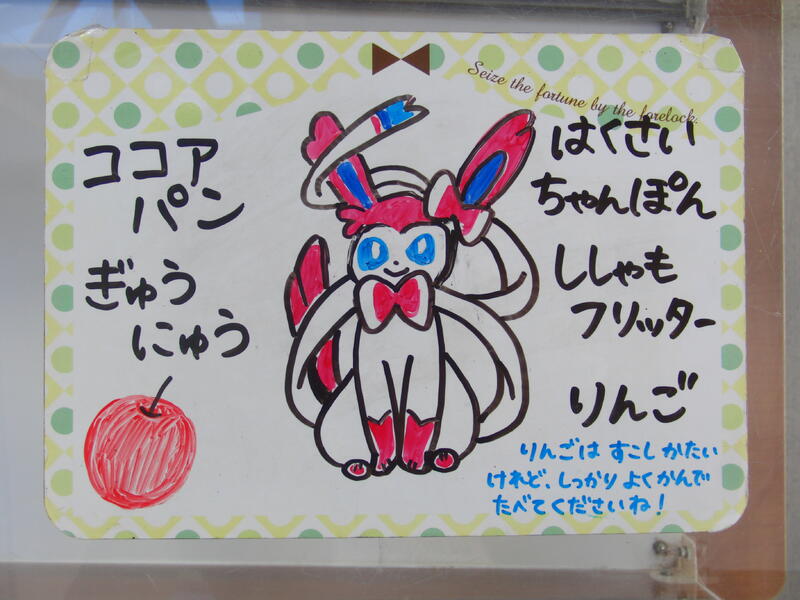 Seize the fortune by the forelock.
ココア
パン
ぎゅう
にゅう
はくさい
ちゃんぽん
ししゃも
フリッター
りんご
りんごは すこし かたい
けれど、しっかり よくかんで
たべてくださいね!